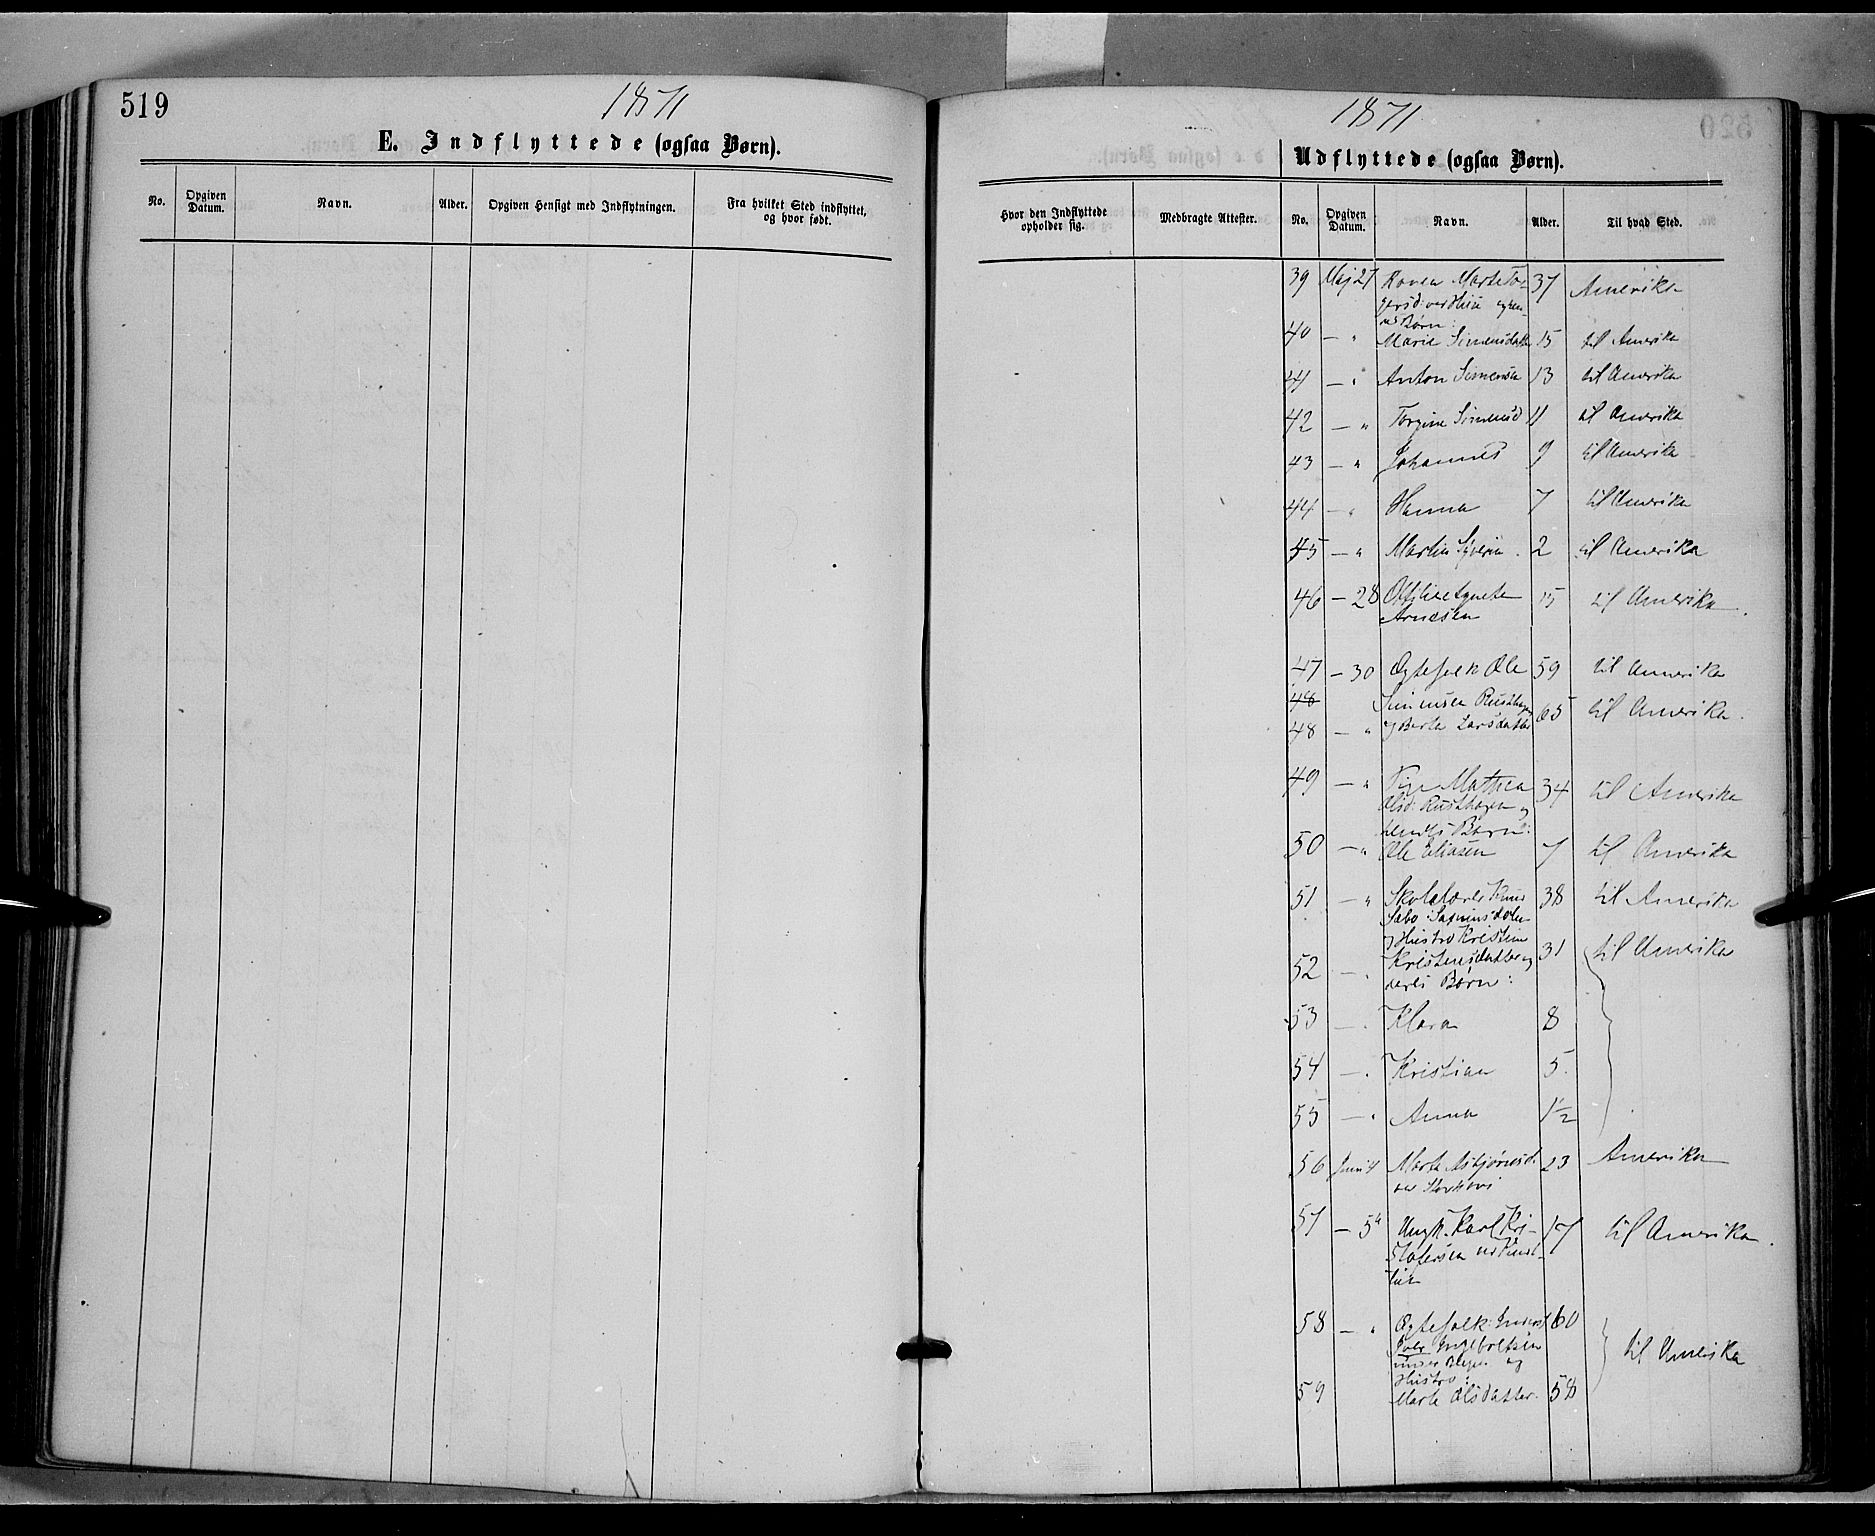 519
1871
E. Indflyttede (ogsaa Børn).
No. Opgiven Datum. Navn. Alder. Opgiven Hensigt med Indflytningen. Fra hvilket Sted indflyttet, og hvor født.
1871
520
Udflyttede (ogsaa Børn).
Hvor den Indflyttede opholder sig. Medbragte Attester. No. Opgiven Datum. Navn. Alder. Til hvad Sted.
39 Maj 27 Konen Marte To- 37 Amerika
gersd:
Børn:
40 — " Marie Simensdatter 15 til Amerika
41 — " Anton Simensen 13 til Amerika
42 — " Torgine Simensd 11 til Amerika
43 — " Johannes 9 til Amerika
44 — " Hanna 7 til Amerika
45 — " Martin Syverin 2 til Amerika
46 — 28 15 til Amerika.
Arnesen
47 — 30 Ægtefolk Ole 59 til Amerika
48 Simensen Rusthagen
48 — " og Berte Larsdatter 65 til Amerika.
49 — " Pige Mathea 34 til Amerika
Olsd: Rusthagen og
hendes Børn:
50 — " Ole Eliasen 7 til Amerika
51 — " Skolelærer 38 til Amerika
og Hustro Kristine
52 — " Kristensdatter og 31 til Amerika
deres Børn:
53 — " Klara 8
54 — " Kristian 5
55 — " Anna 1½
56 Juni 4 Marte Asbjørnsd. 23 Amerika
57 — 5 Ungk. Karl Kri- 17 til Amerika.
stofersen
58 — " Ægtefolk: 60 til Amerika
Iver Ingeboltsen
og
Hustro:
59 Marte Olsdatter. 58